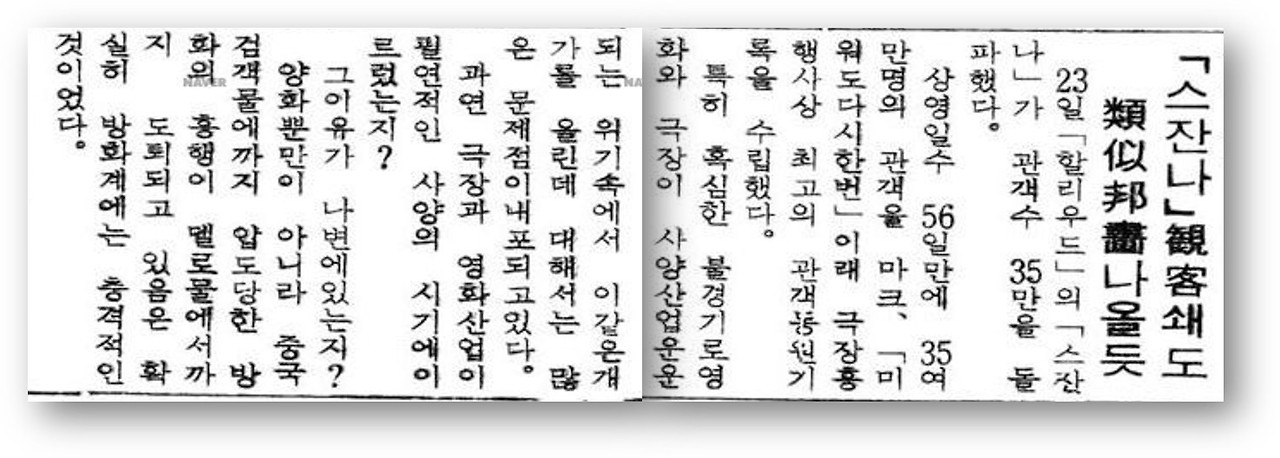 「스잔나」観客쇄도
類似邦畵나올듯
23일「할리우드」의「스잔
나」가 관객수 35만을 돌
파했다。
상영일수 56일만에 35여
만명의 관객을 마크、「미
워도다시한번」이래 극장흥
행사상 최고의 관객동원기
록을 수립했다。
특히 혹심한 불경기로영
화와 극장이 사양산업운운
되는 위기속에서 이같은개
가를 올린데 대해서는 많
은 문제점이내포되고있다。
과연 극장과 영화산업이
필연적인 사양의 시기에이
르렀는지?
그이유가 나변에있는지?
양화뿐만이 아니라 중국
검객물에까지 압도당한 방
화의 흥행이 멜로물에서까
지 도퇴되고 있음은 확
실히 방화계에는 충격적인
것이었다。
NAVER
NA